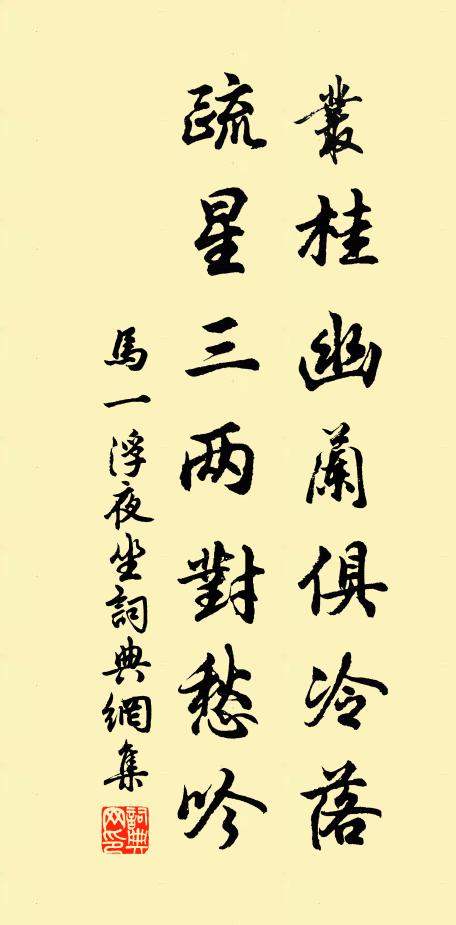 叢桂幽蘭俱冷落
疏星三两對愁吟
馬一浮夜坐詞典網集
詞典网印